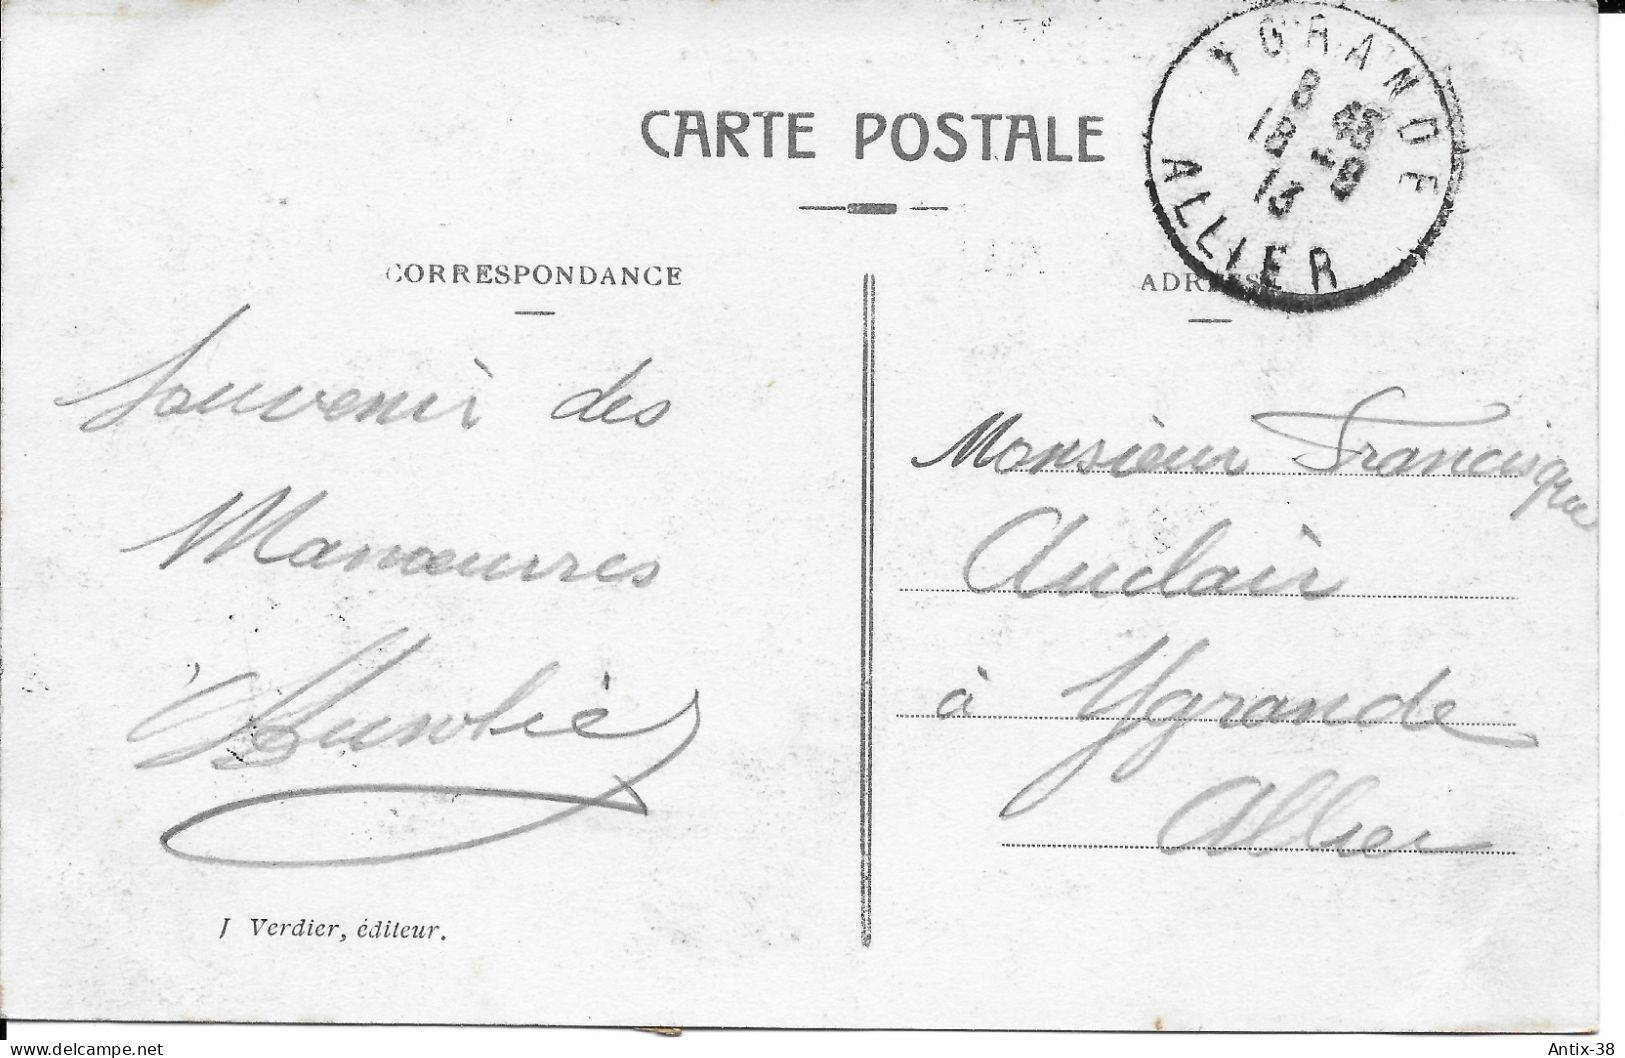 YGRANDE
8 35
18 -9
13
ALLIER
CARTE POSTALE
CORRESPONDANCE
Souvenir des
Manœuvres
J Verdier, éditeur.
ADRESSE
Monsieur Francisque
Auclair
à Ygrande
Allier
delcampe.net
Antix-38